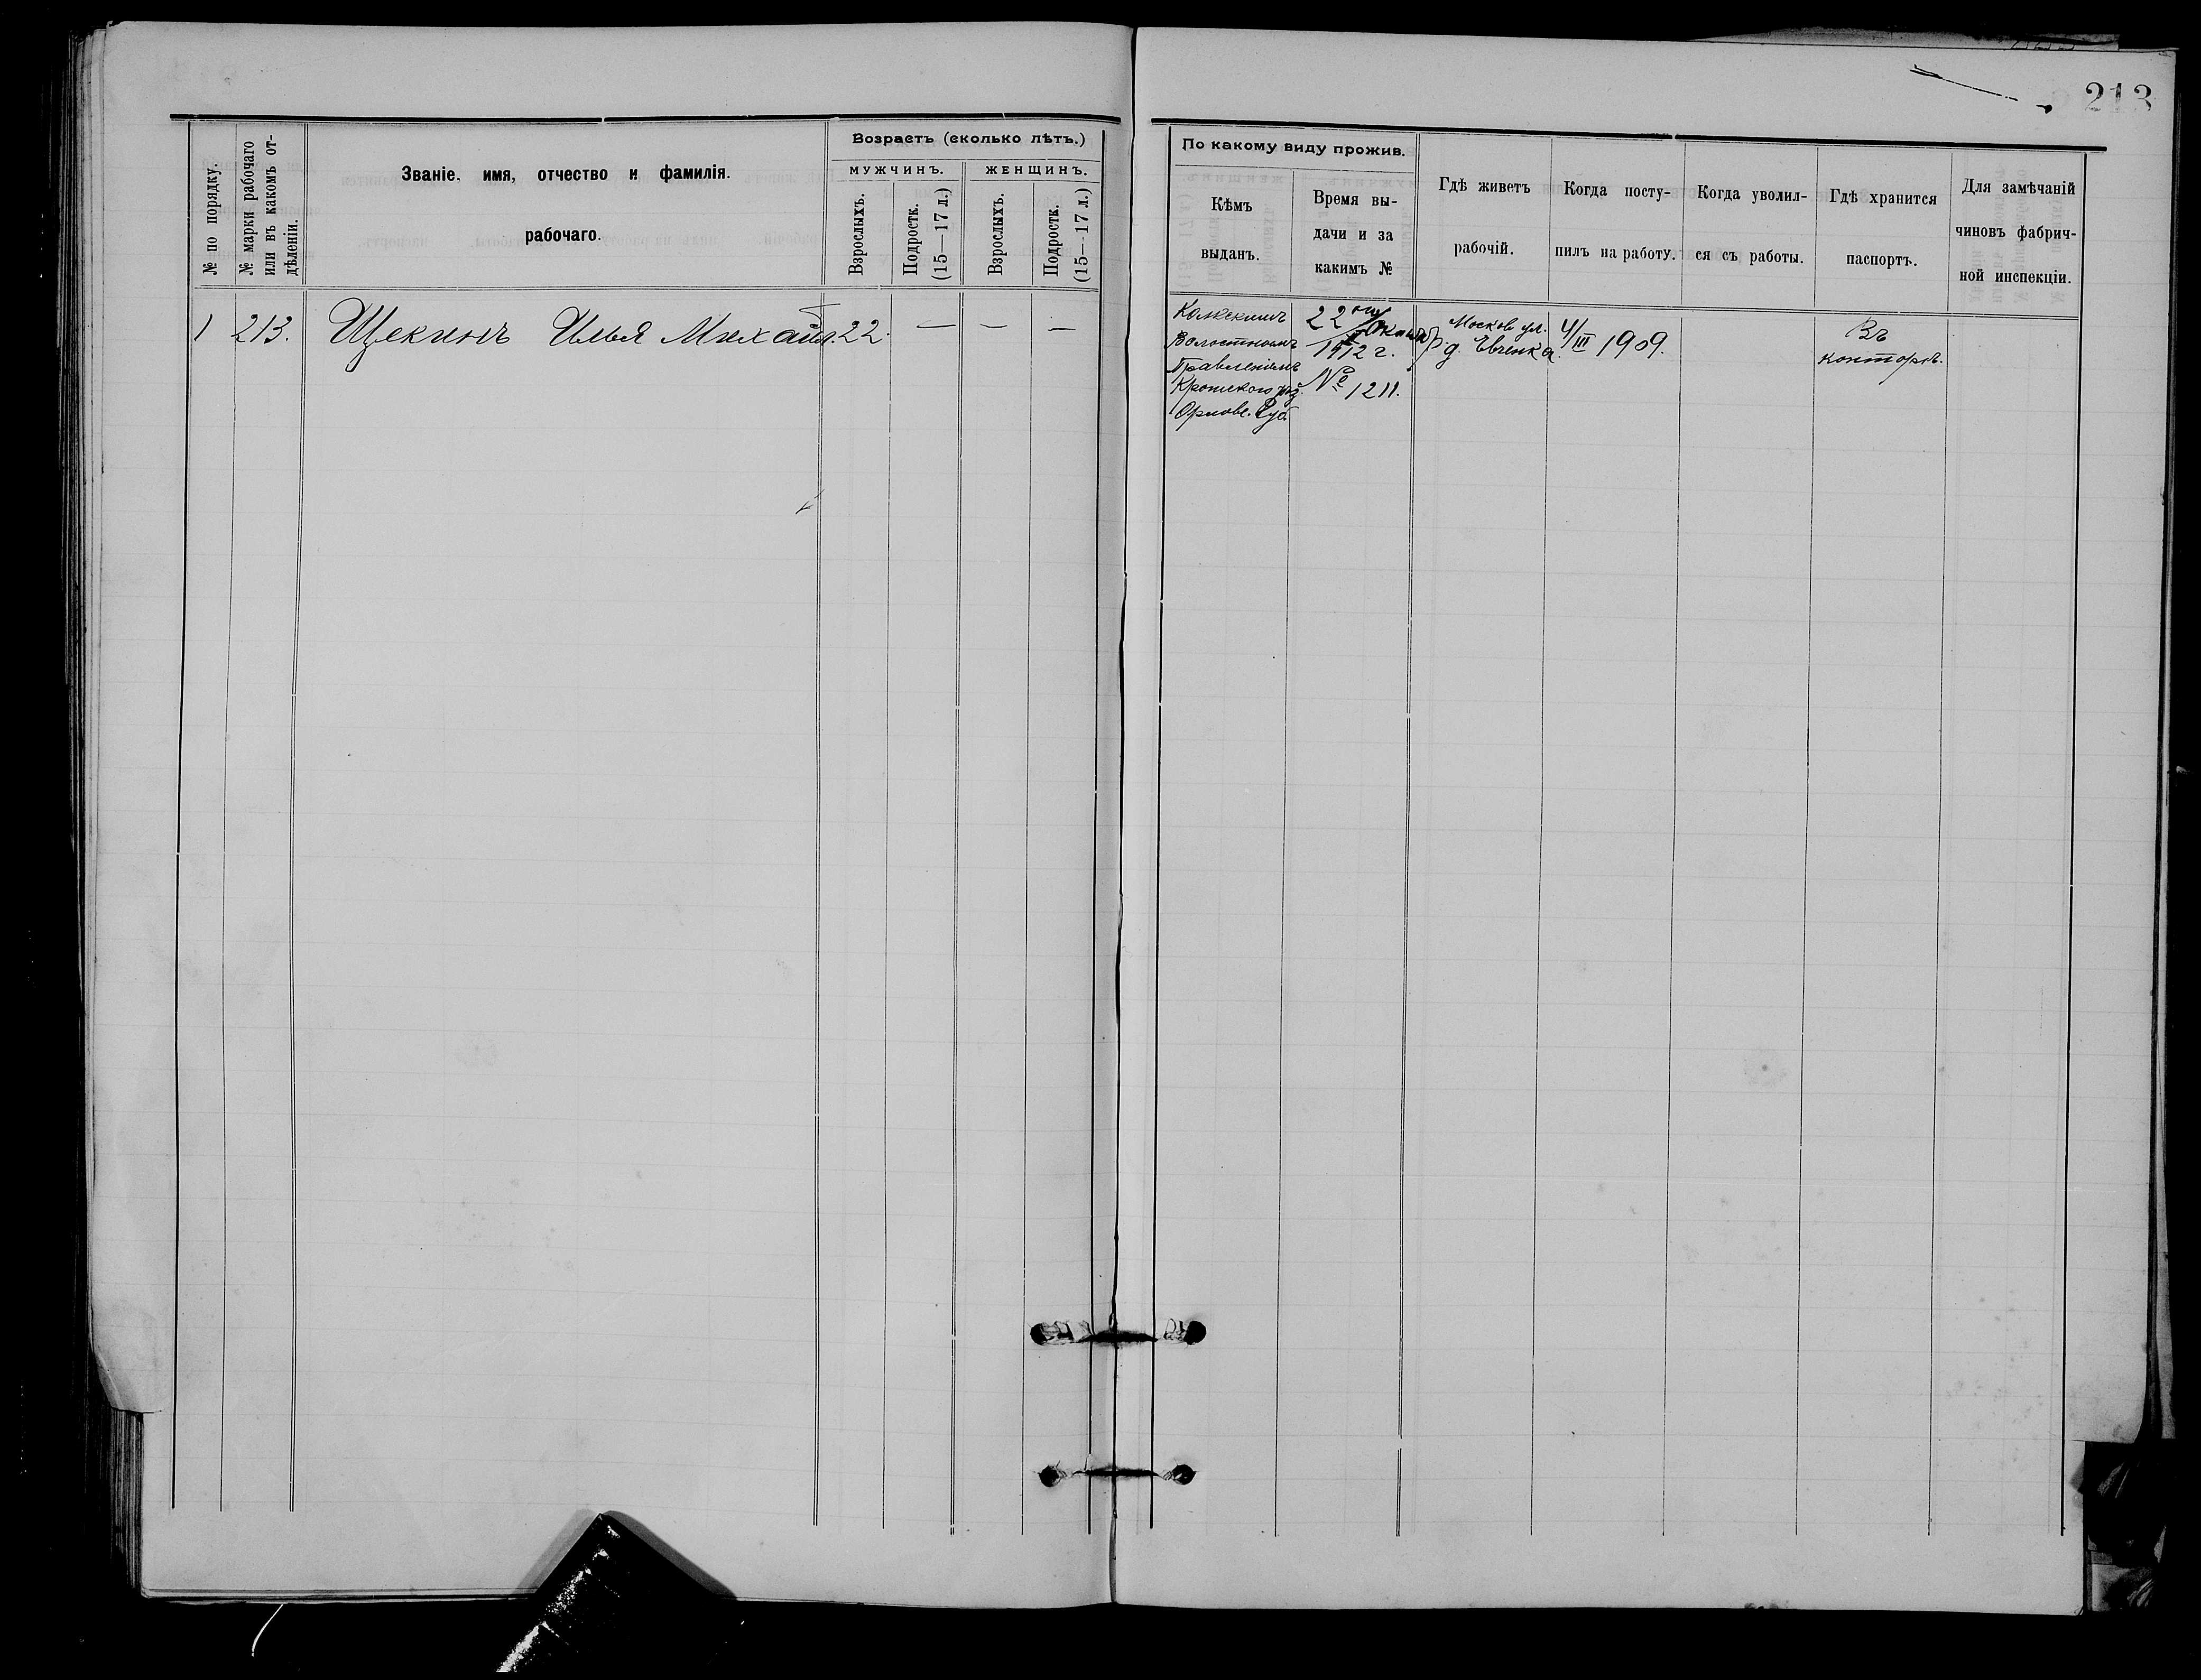 213
№ по порядку.
№ марки рабочаго
или въ какомъ от-
дѣленіи.
Званіе, имя, отчество и фамилія.
рабочаго.
Возрастъ (сколько лѣтъ.)
МУЖЧИНЪ.
ЖЕНЩИНЪ.
Взрослыхъ.
Подростк.
(15—17 л.)
Взрослыхъ.
Подростк.
(15—17 л.)
По какому виду прожив.
Кѣмъ
выданъ.
Время вы-
дачи и за
какимъ №
Гдѣ живетъ
рабочій.
Когда посту-
пилъ на работу.
Когда уволил-
ся съ работы.
Гдѣ хранится
паспортъ.
Для замѣчаній
чиновъ фабрич-
ной инспекціи.
1 213. Щекинъ Илья Михайл. 22. — — —
Волостнымъ
Правленіемъ
Кромского уѣз.
Орловс. Губ.
22
1912 г.
№ 1211.
Москов ул.
д. Евченка.
4/III 1909.
Въ
конторѣ.